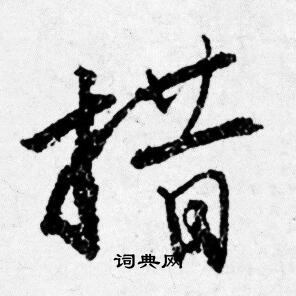 措
词典网